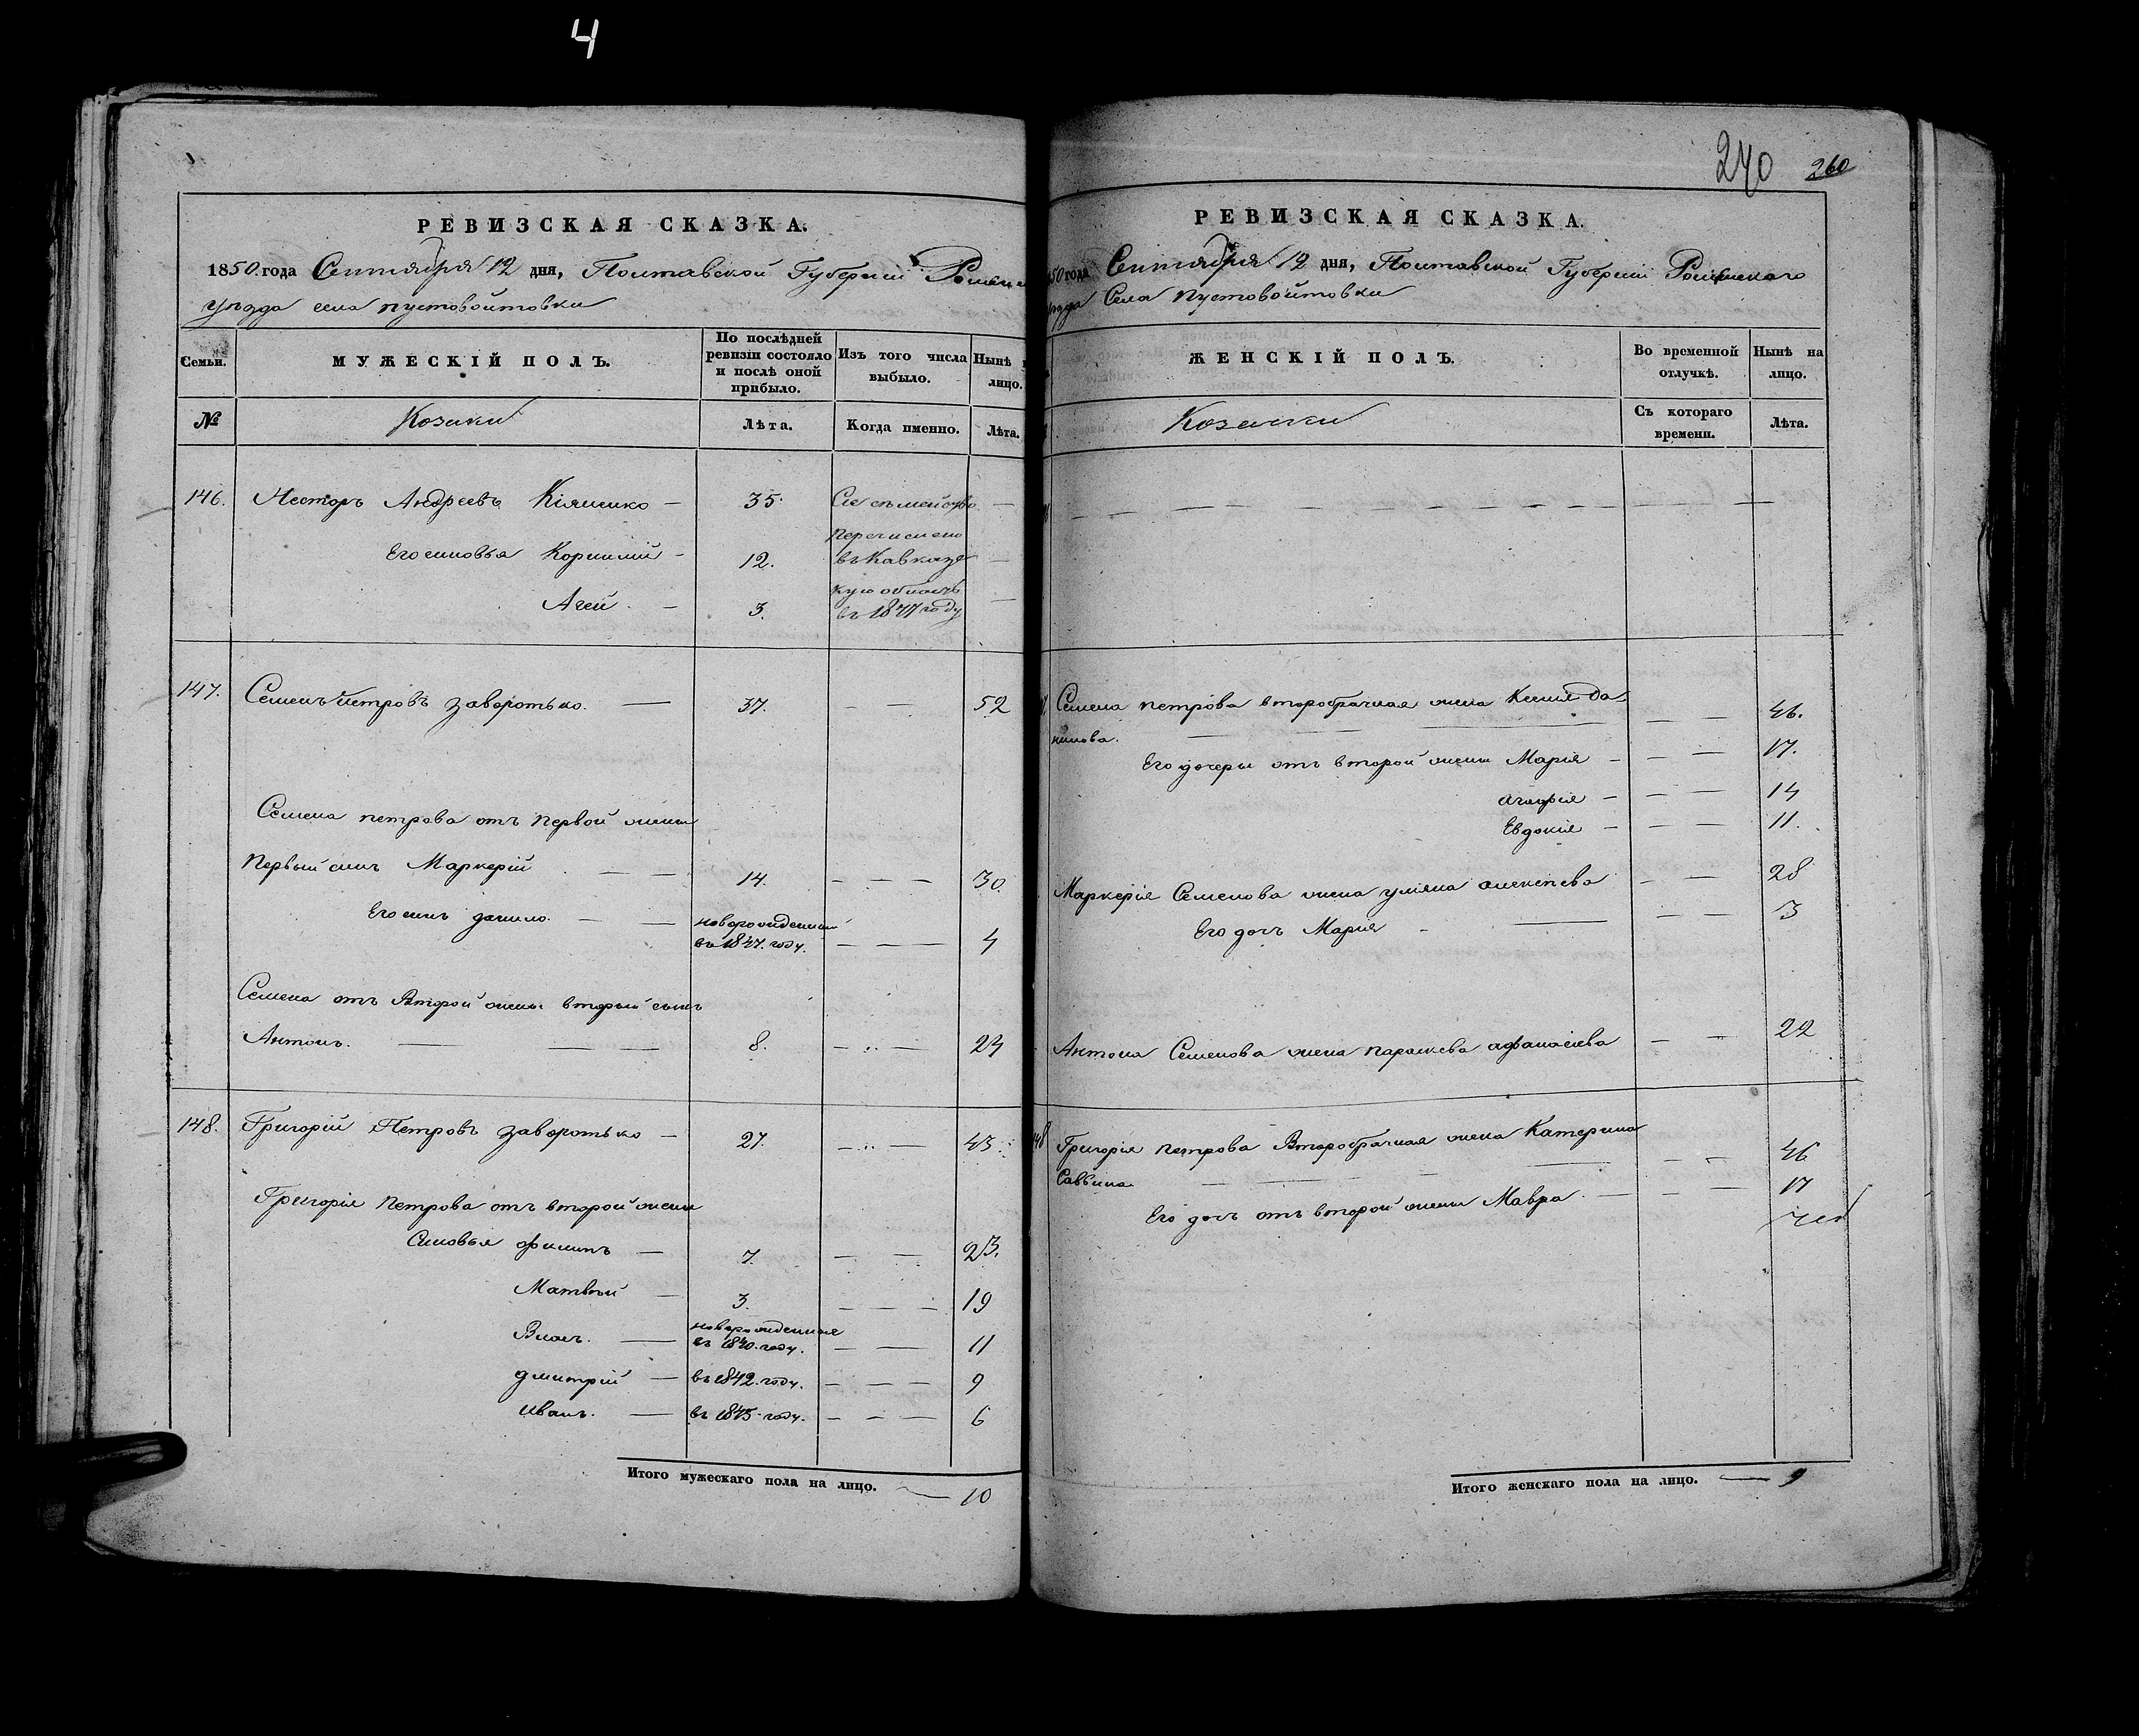 4
РЕВИЗСКАЯ СКАЗКА.
1850 года Сентября 12 дня, Полтавской Губернии
уезда села пустовойтовки
Семьи.
МУЖЕСКІЙ ПОЛЪ.
По послѣдней
ревизіи состояло
и послѣ оной
прибыло.
Изъ того числа
выбыло.
Нынѣ
лицо.
№
Козаки
Лѣта.
Когда именно.
Лѣта.
146. Несторъ Андреевъ Кіяшенко — 35. Сіе семейство —
перечислено
Его синовья Корнилий — 12. въ Кавказс —
кую область
Агей — 3. въ 1847 году —
147. Семенъ петровъ заворотько. — 37. — — 52
Семена петрова отъ первой жены
первый синъ Маркерій — — 14. — — — 30.
Его синъ данило. — — новорожденный
въ 1847. году. — — — 4
Семена отъ Второй жены вторый сынъ
Антонъ. — — — 8. — — 24
148. Григорій Петровъ заворотько — 27. — — 43
Григорія петрова отъ второй жены
Синовья филипъ — 7. — — 23.
Матвѣй — 3. — — — 19
новорожденные
Власъ. — въ 1840. году. — — 11
дмитрій — въ 1842. году. — — — 9
иванъ. — въ 1845. году. — — — 6
Итого мужескаго пола на лицо. — 10
240 260
РЕВИЗСКАЯ СКАЗКА.
50 года Сентября 12 дня, Полтавской Губерніи Роменского
уезда Села пустовойтовки
ЖЕНСКІЙ ПОЛЪ.
Во временной
отлучкѣ.
Нынѣ на
лицо.
Козачки
Съ котораго
времени.
Лѣта.
Семена петрова второбрачная жена Ксения Да-
нилова. — — — — — 46.
Его дочери отъ второй жены Марія — — — 17.
агафия — — — 14
Евдокия — — — 11.
Маркерія Семенова жена уліяна алексеева — — 28
Его дочъ Марія — — — 3
Антона Семенова жена параскева афанасиева — — 22
148 Григорія петрова Второбрачная жена Катерина
Саввина — — — — 46
Его дочъ отъ второй жены Мавра. — — — 17
Итого женскаго пола на лицо. — 9